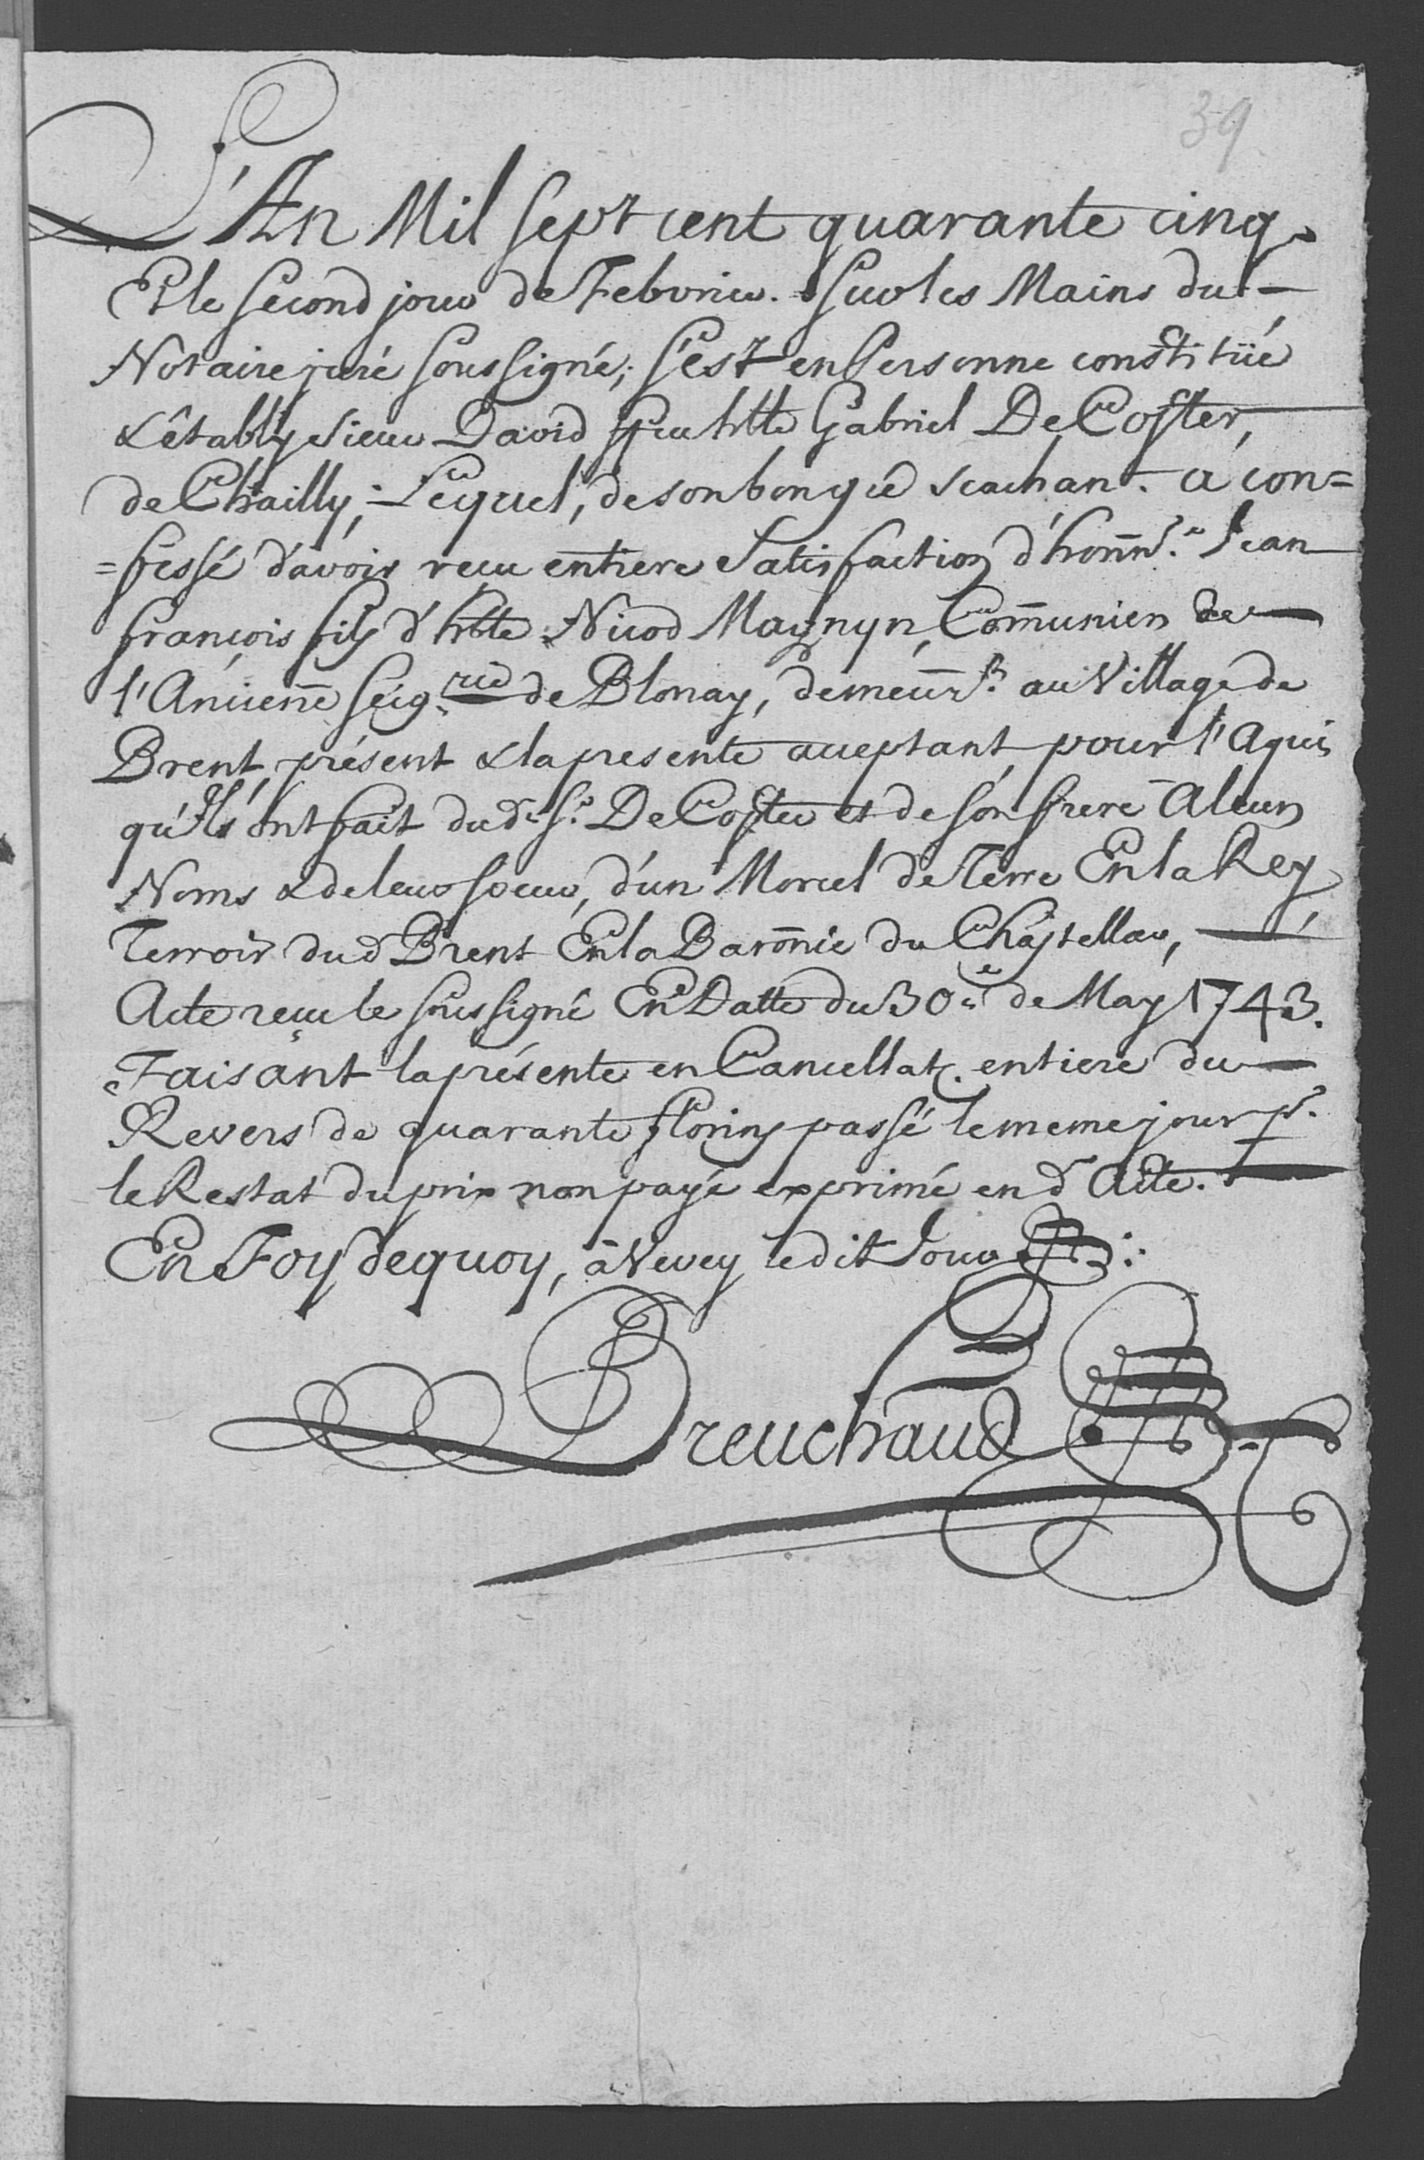 39
L'An Mil sept cent quarante cinq.
Et le second jour de Febvrier. Sur les Mains du
Notaire juré soussigné; s'est en Personne constitüé
& êtably sieur David ffeu hble Gabriel De Cofter,
de Chailly; Lequel, de son bon gré scachant. a con=
=fessé d'avoir reçu entiere Satisfaction d'honn.e Jean
françois fils d'hble Nicod Magnyn, Com̄unier de
l'Ancien̄e Seig.rie de Blonay, demeur.t au Village de
Brent, présent & la presente acceptant, pour l'Aquis
qu'Ils ont fait dud.t S.r De Cofter et de son frere A leurs
Noms & de leur soeur, d'un Morcel de Terre En la Rey
Terroir dud Brent En la Baron̄ie du Chastellar,
Acte reçu le soussigné En Datte du 30.e de May 1743.
Faisant la présente en Cancellat. entiere du
Revers de quarante florins passé le meme jour p.r
le Restat du prix non payé exprimé en d Acte.
En Foy de quoy, à Vevey ledit Jour
Breuchaud